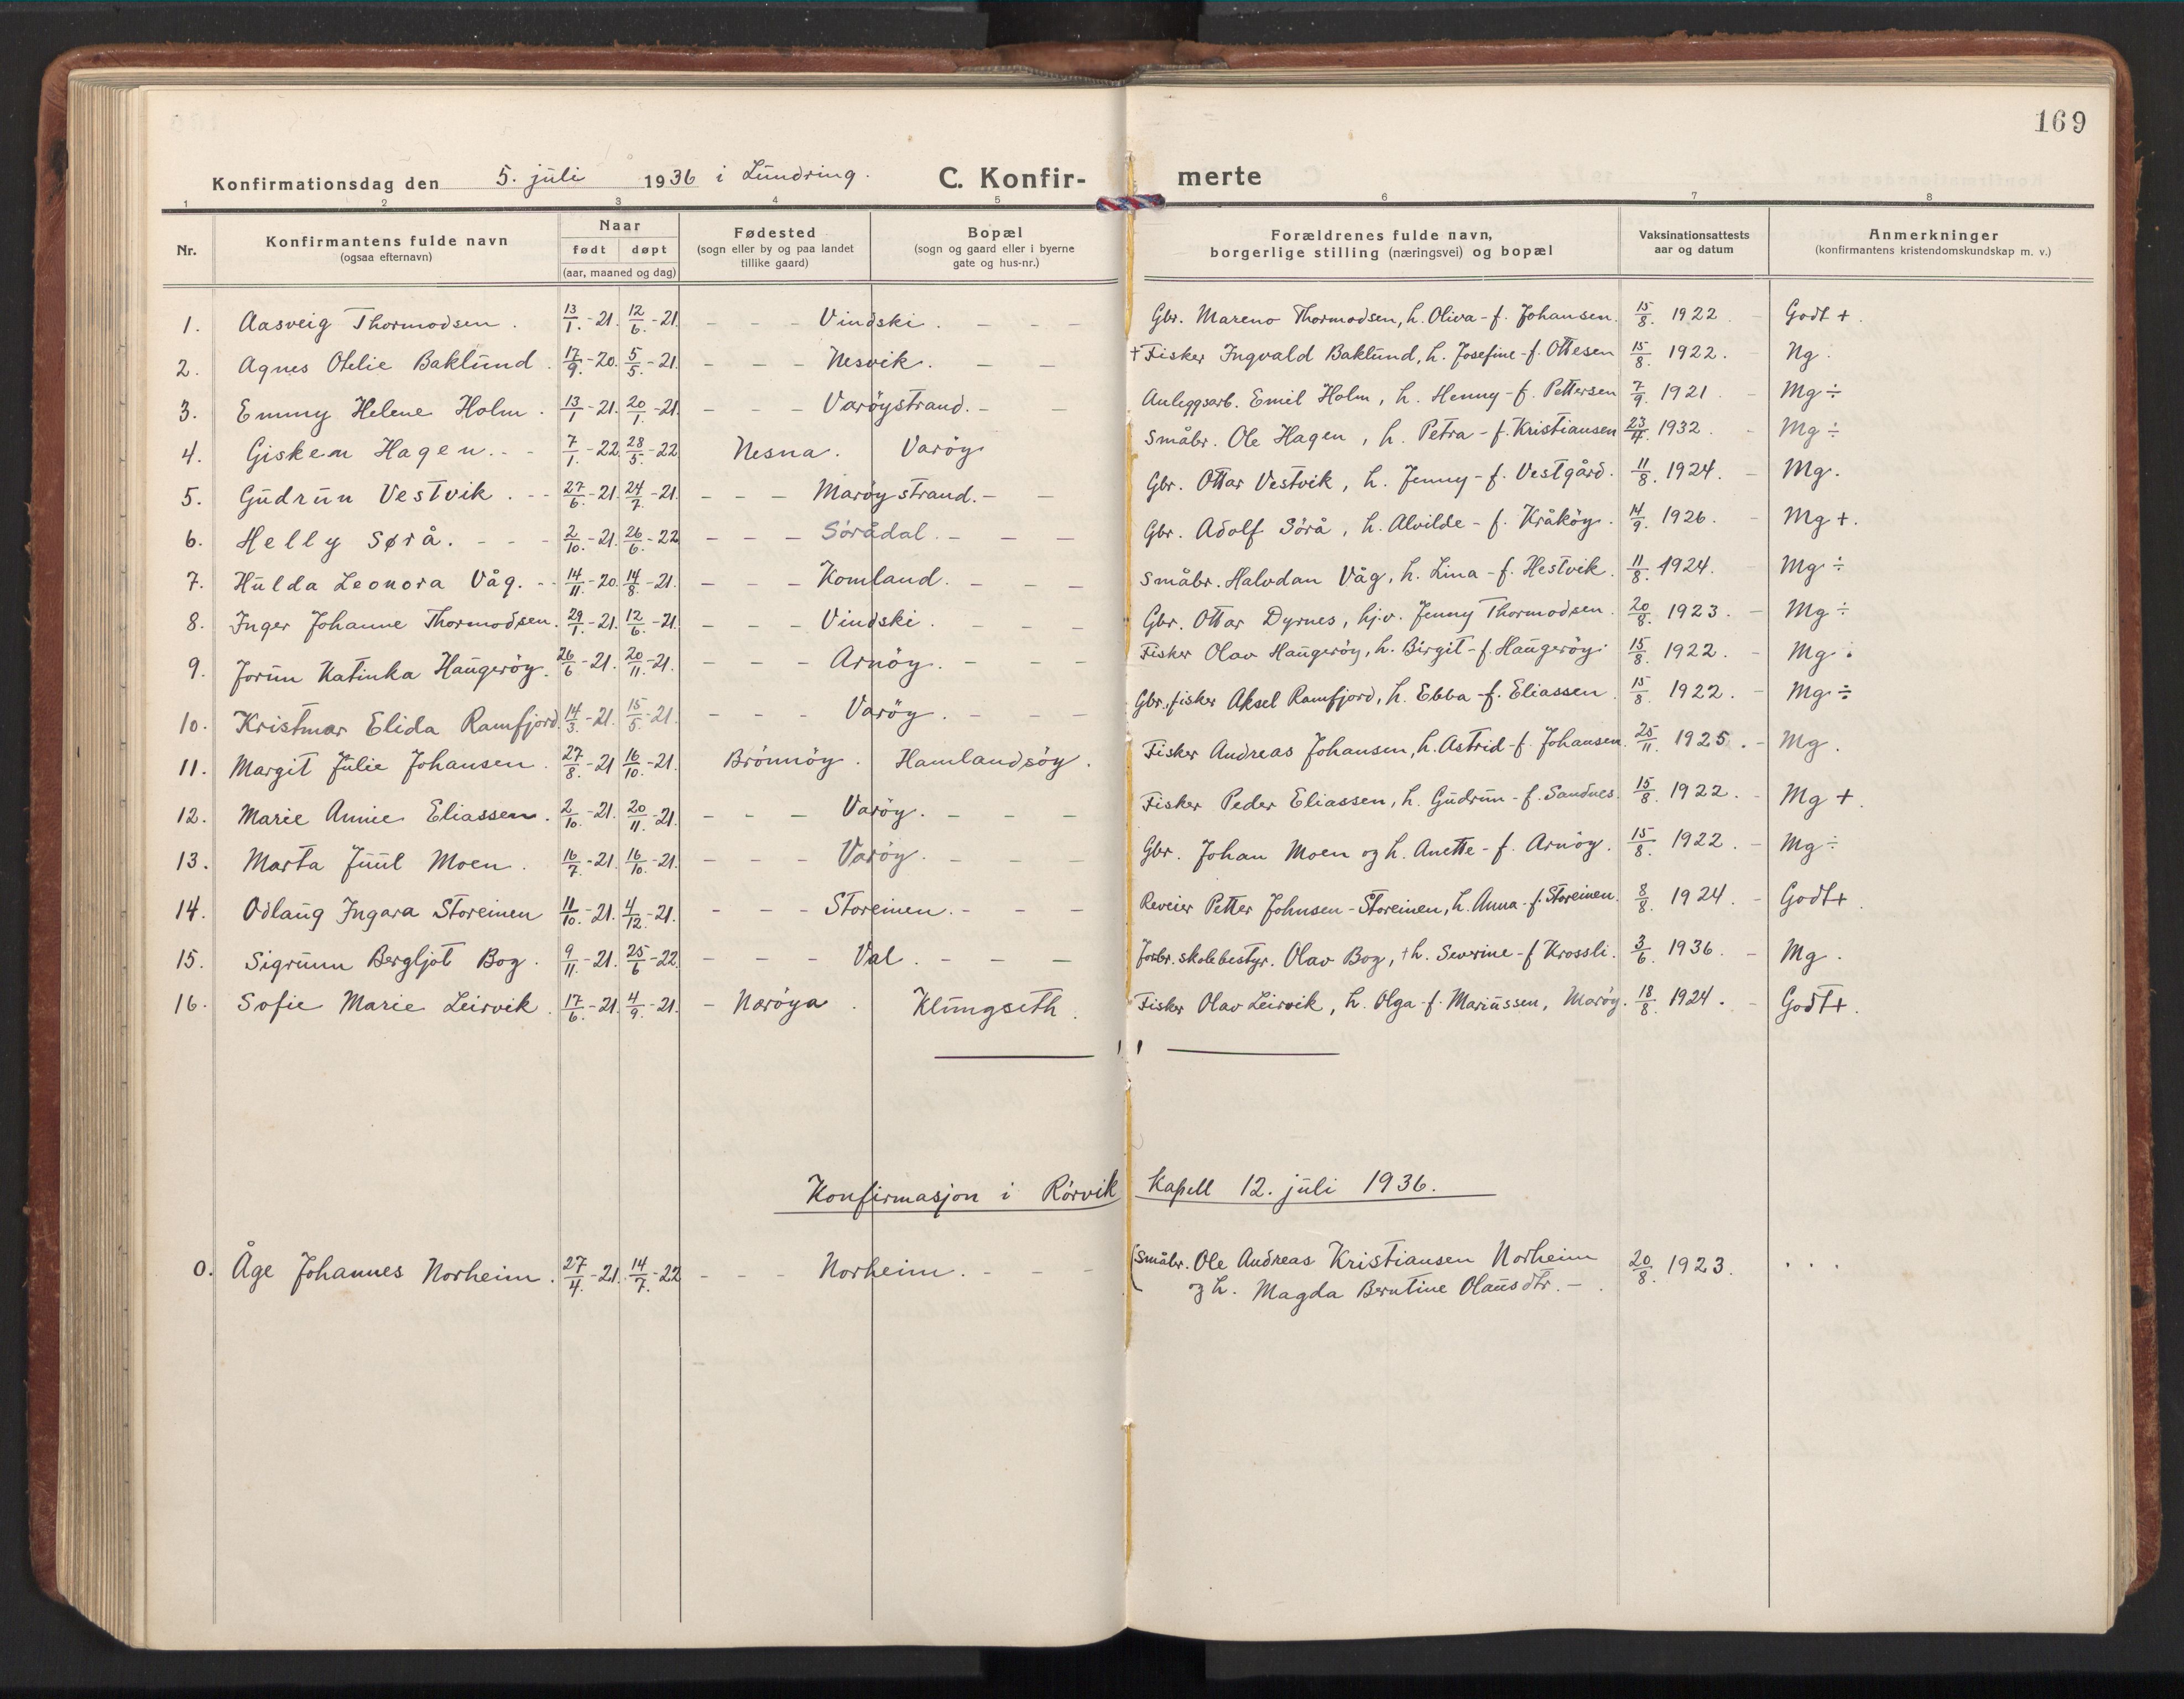 169
Konfirmationsdag den 5. juli 1936 i Lundring. C. Konfir- merte
1 2 3 4 5 6 7 8
Nr. Konfirmantens fulde navn (ogsaa efternavn) Naar født døpt (aar, maaned og dag) Fødested (sogn eller by og paa landet tillike gaard) Bopæl (sogn og gaard eller i byerne gate og hus-nr.) Forældrenes fulde navn, borgerlige stilling (næringsvei) og bopæl Vaksinationsattests aar og datum Anmerkninger (konfirmantens kristendomskundskap m. v.)
1. Aasveig Thormodsen. 13/1.-21. 12/6.-21. - - - Vindski. - - - Gbr. Mareno Thormodsen, h. Oliva - f. Johansen. 15/8. 1922 - Godt +.
2. Agnes Otelie Baklund. 17/9.-20. 5/5.-21. - - - Nesvik. - - † Fisker Ingvald Baklund, h. Josefine - f. Ottesen 15/8. 1922. Ng.
3. Emmy Helene Holm. 13/1-21. 20/1.-21. - - - Varöystrand. - - Anleggsarb. Emil Holm, h. Henny - f. Pettersen 7/9. 1921 - Mg ÷
4. Giskem Hagen. - - 7/1.-22. 28/5.-22 Nesna. Varöy Småbr. Ole Hagen, h. Petra - f. Kristiansen 23/4. 1932. - Mg ÷
5. Gudrun Vestvik. - - 27/6.-21. 24/7.-21. - - - Maröystrand. - - Gbr. Ottar Vestvik, h. Jenny - f. Vestgård. 11/8. 1924. - Mg.
6. Helly Sørå. - - - 2/10.-21. 26/6.-22 - - - Sörådal. - - - Gbr. Adolf Sörå, h. Alvilde - f. Kråköy. 14/9. 1926. - Mg +.
7. Hulda Leonora Våg. - - 14/11.-20. 14/8.-21. - - - Komland. - - - Småbr. Halvdan Våg, h. Lina - f. Hestvik. 11/8. 1924. Mg ÷
8. Inger Johanne Thormodsen. 29/1.-21. 12/6.-21. - - - Vindski. - - - Gbr. Ottar Dyrnes, hj.v. Jenny Thormodsen. 20/8. 1923. - Mg ÷
9. Jorun Katinka Haugeröy. 26/6-21. 20/11.-21. - - - Arnöy. - - - Fisker Olav Haugeröy, h. Birgit - f. Haugeröy. 15/8. 1922. - Mg.
10. Kristmar Elida Ramfjord 14/3.-21. 15/5-21. - - - Varöy. - - - Gbr. fisker Aksel Ramfjord, h. Ebba - f. Eliassen. 15/8. 1922. - Mg ÷
11. Margit Julie Johansen. 27/8.-21 16/10.-21. Brönnöy. Hamlandsöy. Fisker Andreas Johansen, h. Astrid - f. Johansen. 25/11. 1925. - Mg.
12. Marie Annie Eliassen. 2/10.-21. 20/11.-21. - - - Varöy. - - - Fisker Peder Eliassen, h. Gudrun - f. Sandnes. 15/8. 1922. - Mg +.
13. Marta Juul Moen. 16/7.-21. 16/10.-21. - - - Varöy. - - - Gbr. Johan Moen og h. Anette - f. Arnöy. 15/8. 1922. - Mg ÷
14. Odlaug Ingara Storeinen 11/10.-21. 4/12.-21. - - - Storeinen. - - - Reveier Petter Johnsen-Storeinen, h. Anna - f. Storeinen. 8/8. 1924. - Godt +.
15. Sigrunn Bergljot Bog. 9/11.-21. 25/6-22. - - - Val. - - - Forbr. skolebestyr. Olav Bog, † h. Severine - f Krossli. 3/6. 1936. - Mg.
16. Sofie Marie Leirvik. 17/6.-21. 4/9.-21. - Næröya. Klungseth. Fisker Olav Leirvik, h. Olga - f. Mariussen, Maröy. 18/8. 1924. - Godt +.
Konfirmasjon i Rörvik Kapell 12. juli 1936.
0. Åge Johannes Norheim. 27/4.-21. 14/7.-22 - - - Norheim. - - - (Småbr. Ole Andreas Kristiansen Norheim 20/8. 1923. . . .
og h. Magda Berntine Olausdtr. -